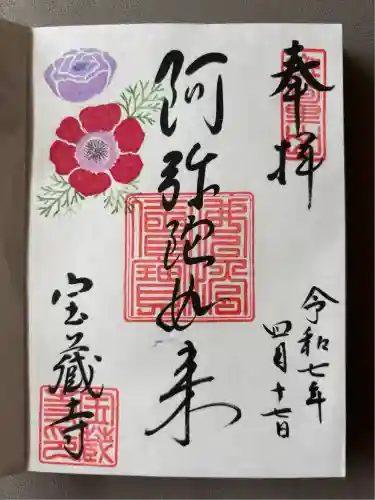 奉拝
令和七年
四月十七日
阿弥陀如来
佛法僧寶
宝蔵寺